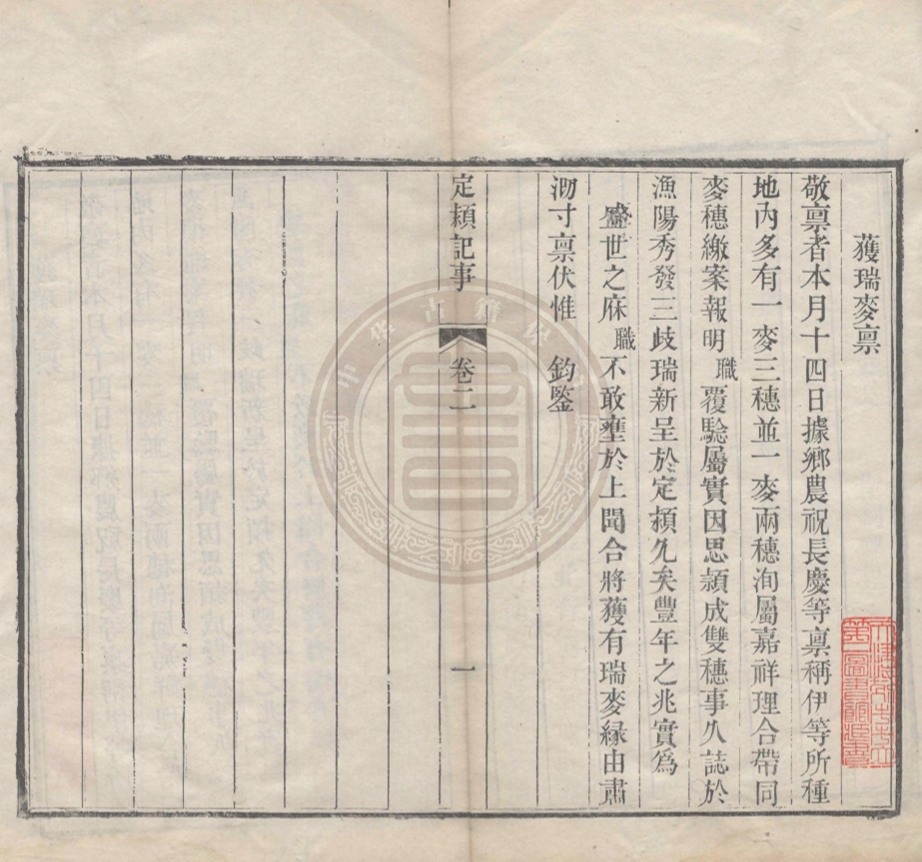 獲瑞麥禀
敬禀者本月十四日據鄉農祝長慶等禀稱伊等所種
地內多有一麥三穗並一麥兩穗洵屬嘉祥理合帶同
麥穗繳案報明職覆驗屬實因思穎成雙穗事久誌於
漁陽秀發三歧瑞新呈於定潁久矣豐年之兆實為
盛世之庥職不敢壅於上聞合將獲有瑞麥緣由肅
沏寸禀伏惟 鈞鑒
定潁記事
卷二
一
中华古籍保